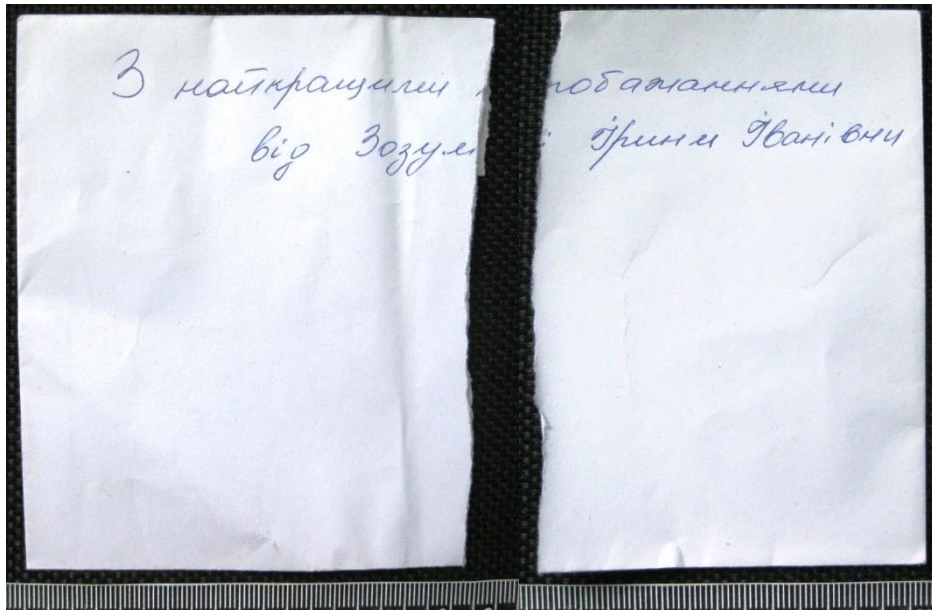 З найкращими побажаннями
від Зозулі Ірини Іванівни